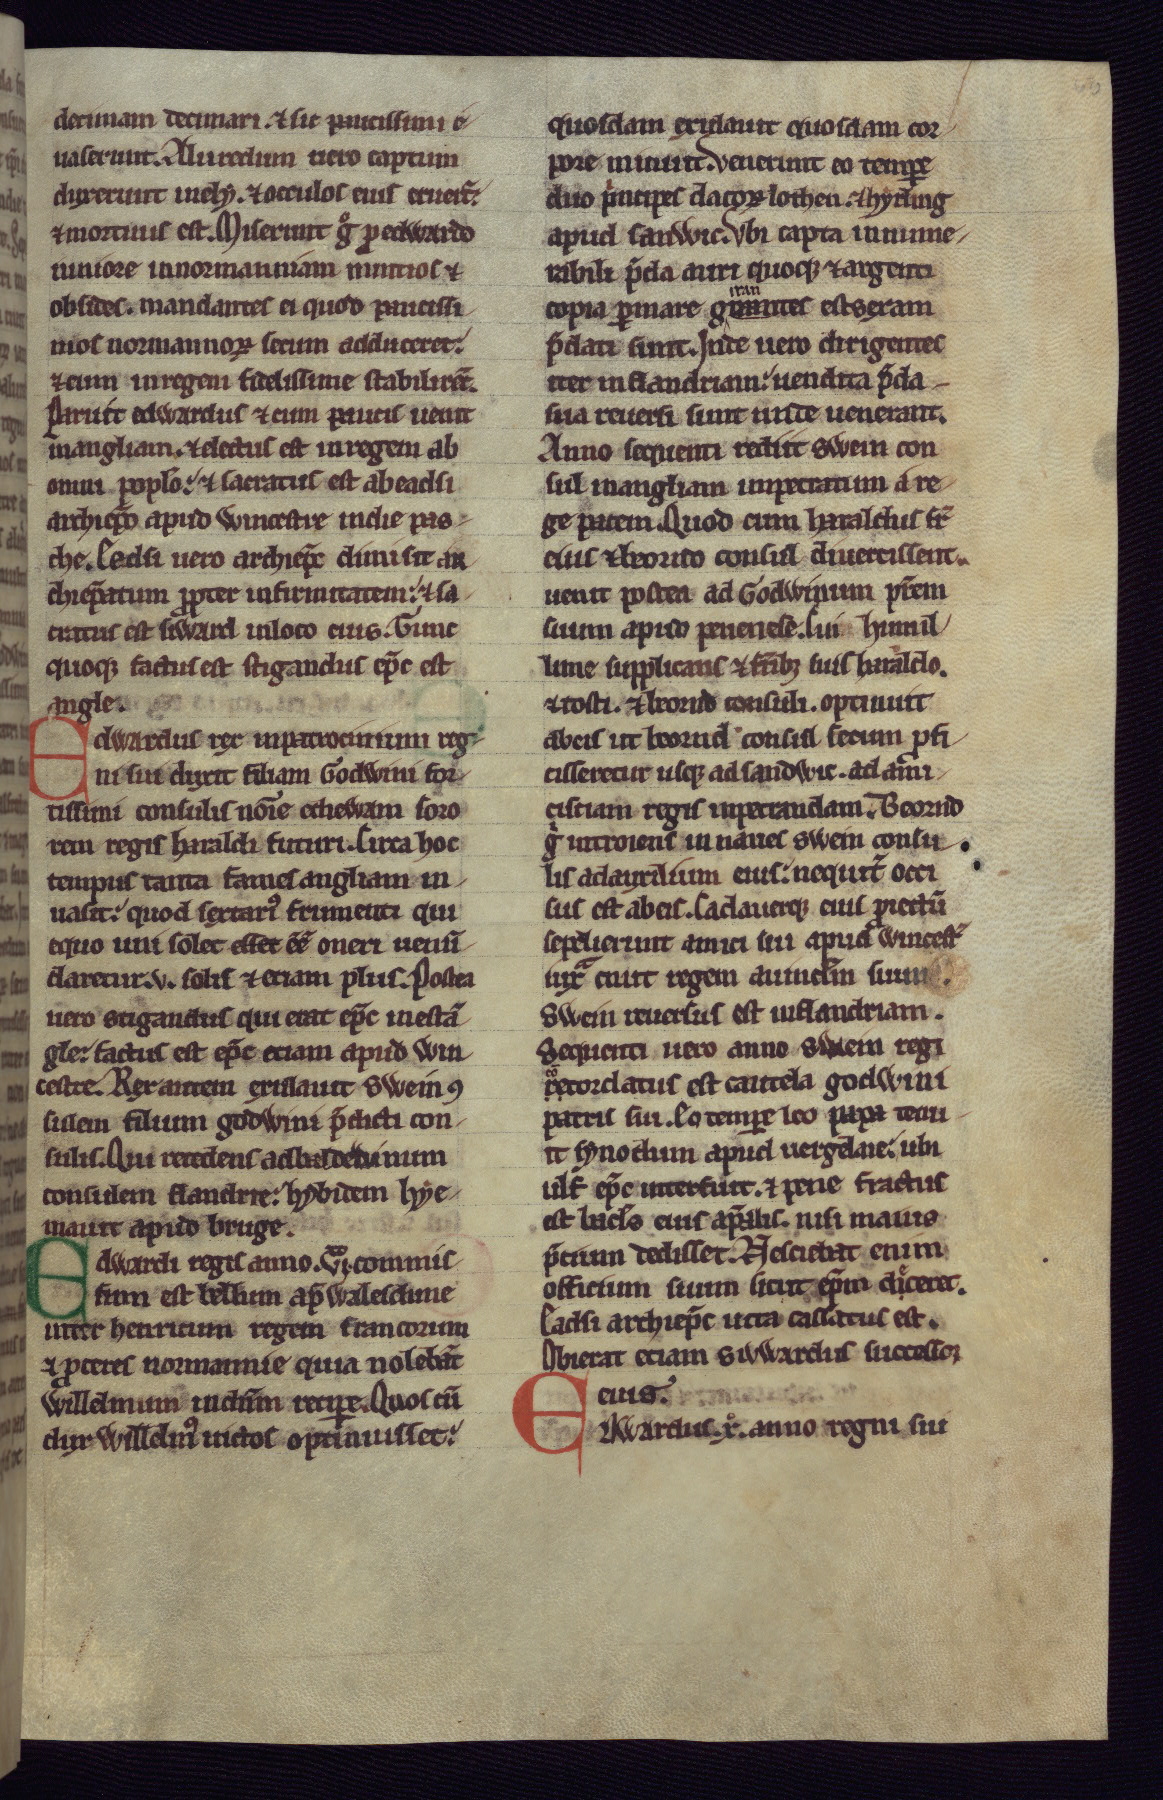 decimam decimari. ⁊ sic paucissimi e
uaserunt. Aluredum uero captum
duxerunt in ely. ⁊ occulos eius eruerūt.
⁊ mortuus est. Miserunt gͦ ꝓ edwardo
iuniore in normanniam nuntios ⁊
obsides. mandantes ei quod paucissi
mos normannoꝝ secum adduceret.
⁊ eum in regem fidelissime stabilirēt.
Paruit edwardus ⁊ cum paucis uenit
in angliam. ⁊ electus est in regem ab
omni pop̄lo. ⁊ sacratus est ab eadsi
archiep̄o apud Wincestre in die pas
che. Eadsi uero archiep̄c dimisit ar
chiep̄atum ꝓpter infirmitatem. ⁊ sa
cratus est siward in loco eius. Tunc
quoqꝫ factus est stigandus ep̄c est
angle.
Edwardus rex in patrocinium reg
ni sui duxit filiam Godwini for
tissimi consulis noīe edhewam soro
rem regis haraldi futuri. Circa hoc
tempus tanta fames angliam in
uasit. quod sextariꝰ frumenti qui
equo uni solet esset eē̄ oneri uenū
daretur. v. solis ⁊ eciam plus. Postea
uero stigandus qui erat ep̄c in estā
gle. factus est ep̄c eciam apud Win
cestre. Rex autem exillauit swein ꝯ
sulem filium godwini p̄dicti con
sulis. Qui recedens ad baldewinum
consulem flandrie. hybidem hye
mauit apud bruge.
Edwardi regis anno. vi. commis
sum est bellum ap̄ walesdune
inter henricum regem francorum
⁊ ꝓceres normannie quia nolebāt
Willelmum in dn̄m reciꝑe. Quos cū
dux Willelmꝰ uictos optinuisset.
quosdam exulauit quosdam cor
pore minuit. Venerunt eo temꝑe
duo pͥncipes dacoꝝ lothen. ⁊ hyrling
apud sandwic. Vbi capta innume
rabili p̄da auri quoqꝫ ⁊ argenti
copia ꝑ mare giran͞tes estsexam
p̄dati sunt. Inde uero dirigentes
iter in flandriam. uendita p̄da
sua reuersi sunt unde uenerant.
Anno sequenti rediit swein con
sul in angliam impetratum a re
ge pacem. Quod cum haraldus fr̄
eius ⁊ beorno consul diuertissent.
uenit postea ad Godwinum pr̄em
suum apud peuenese. Cui humil
lime supplicans ⁊ fr̄ibꝫ suis haraldo.
⁊ tosti. ⁊ beorno consuli. optinuit
ab eis ut beornd consul secum ꝓfi
cisceretur usqꝫ ad sandwic. ad amͥ
cisciam regis impetrandam. Beornd
gͦ introiens in naues swein consu
lis ad auxilium eius. nequitͥ occi
sus est ab eis. Cadauerqꝫ eius ꝓiectū
sepelierunt amici sui apud wincestͬ
iuxͣ cnut regem auunclm̄ suum.
Swein reuersus est in flandriam.
Sequenti uero anno swein regi
recordatus est cautela godwini
patris sui. Eo temꝑe leo papa tenu
it synodum apud uergelaic. ubi
ulf ep̄c interfuit. ⁊ pene fractus
est bacl̄s eius ap̄alis. nisi maius
p̄cium dedisset. Nesciebat enim
officium suum sicut ep̄m diͨeret.
Eadsi archiep̄c uita cassatus est.
Obierat eciam siwwardus successor
eius.
Edwardus. x. anno regni sui